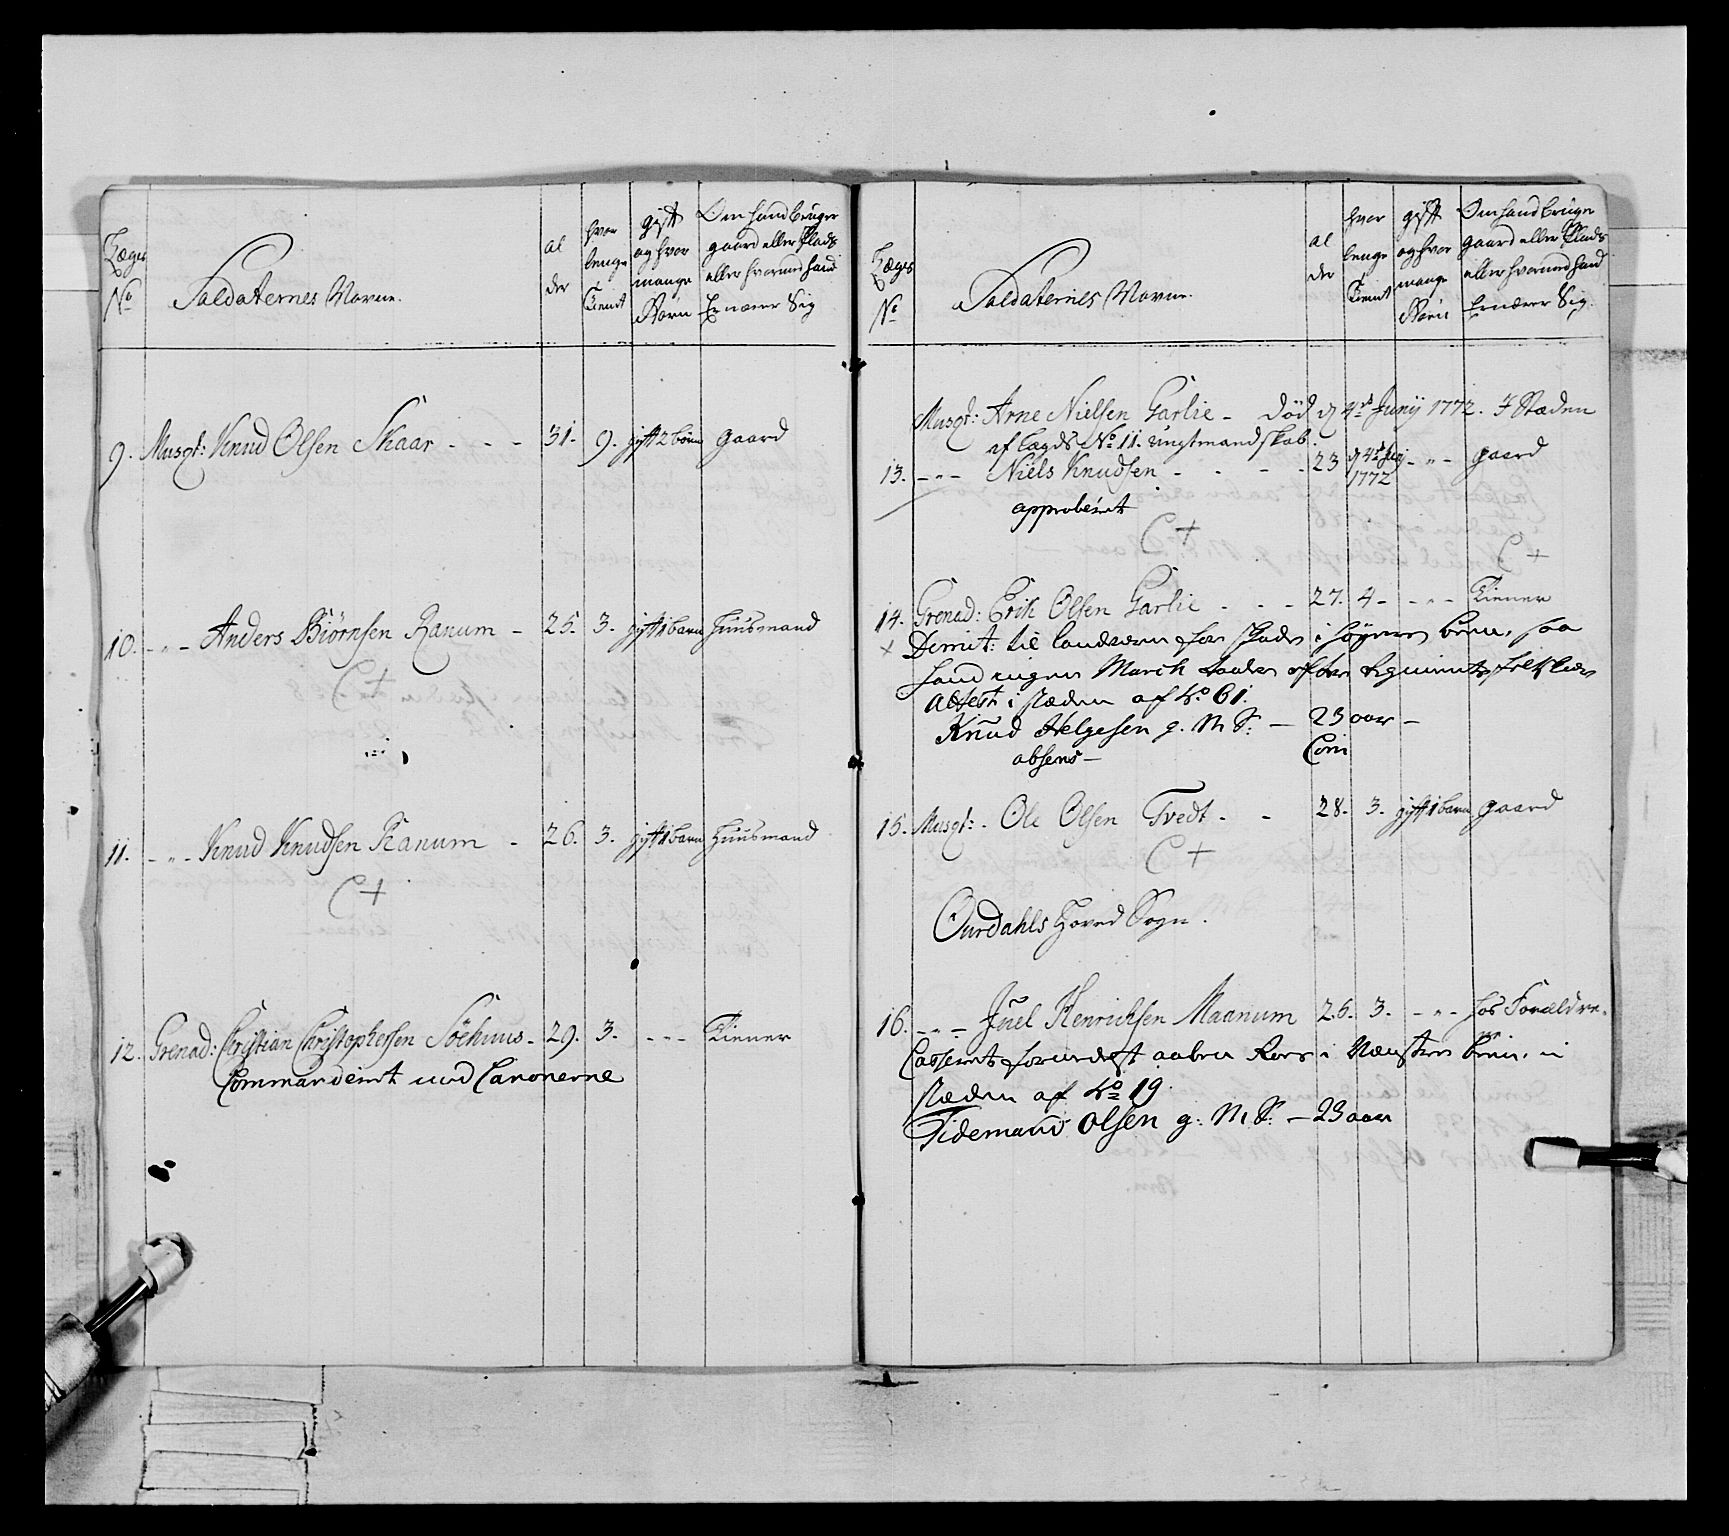 Lægs No
Soldaternes Navne.
al der
hvor lenge tient
gift og hvor mange Børn
Om hand bruger gaard eller Plads eller hvormed hand Ernærer Sig
9. Musqt: Knud Olsen Skaar - - - 31. 9. gift 2 børn gaard
10. - " - Anders Biørnsen Ranum - 25. 3. gift 1 barn Huusmand
C +
11. - " - Knud Knudsen Ranum - 26. 3. gift 1 barn Huusmand
C +
12. Grenad: Christian Christophersen - 29. 3. - - - Tiener
Commanderet ved Canonerne
Læges No
Soldaternes Navne.
al der
hvor lenge tient
gift og hvor mange Børn
Om hand bruger gaard eller Plads eller hvormed hand Ernærer Sig.
Musqt: Arne Nielsen Garlie - Død d 4de Junij 1772. I Stæden
af Lægds No 11. ungtmandskab.
13. - " - Niels Knudsen - - - - 23 d 4de Junij 1772 - " - gaard
approberet
C +
C +
14. Grenad: Erik Olsen Garlie - - - 27. 4 - - " - Tiener
× Dimit: til landværn for skade i høyre been, saa
hand ingen March taaler efter Regiments
attest i stæden af No 61.
Knud Helgesen g. M S: - 23 aar -
absens -
Com
15. Musqt: - Ole Olsen Tvedt - - 28. 3. gift 1 barn gaard
C +
Ourdahls Hoved Sogn.
16. - " - Juel Henrichsen Maanum 26. 3. - " - hos Forældre.
Casseret formedelst aaben Rose i Venstre been, i
stæden af No 19.
Tidemand Olsen g: M S: - 23 aar